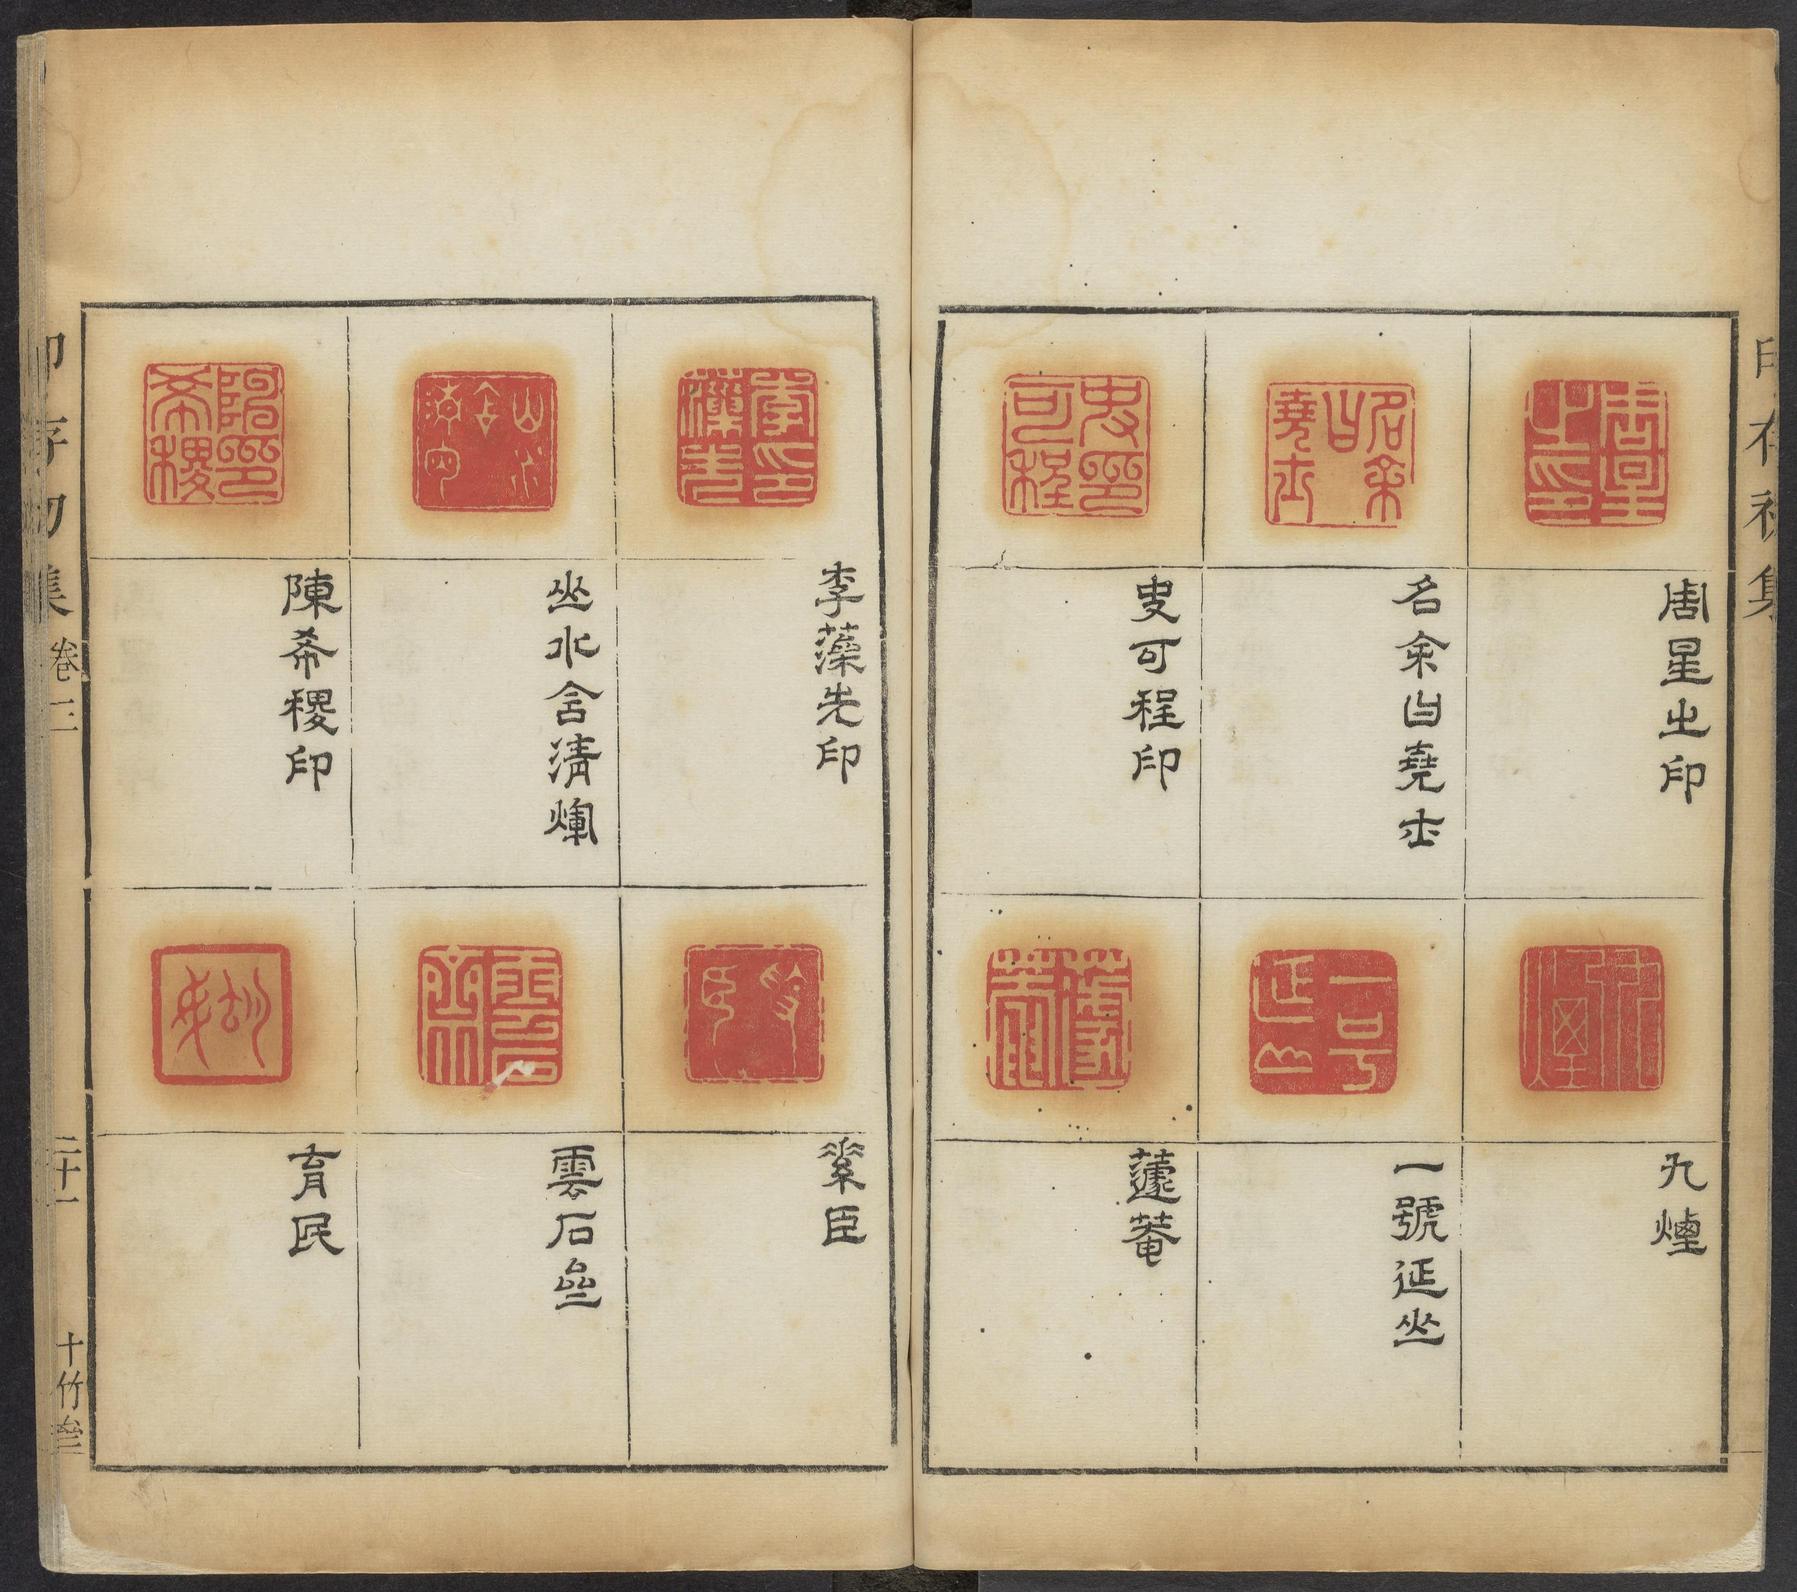 印存初集
周星之印
名余曰堯士
史可程印
九煙
一號延丘
蘧菴
李藻先印
山水含清暉
陳希稷印
縈臣
雲石齋
育民
印存初集
卷二
二十一
十竹齋